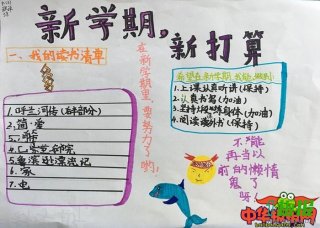 新学期,新打算
一、我的读书清单
1.呼兰河传(后半部分)
2.简·爱
4.巴黎圣母院
5.鲁滨逊漂流记
6.家
在新学期里
要努力了哟!
希望在新学期,我能做到:
1.上课认真听讲(保持)
2.认真书写(加油)
3.坚持锻炼身体(加油)
4.阅读课外书(保持)
不能
再当以
前的懒惰
鬼了
呀!